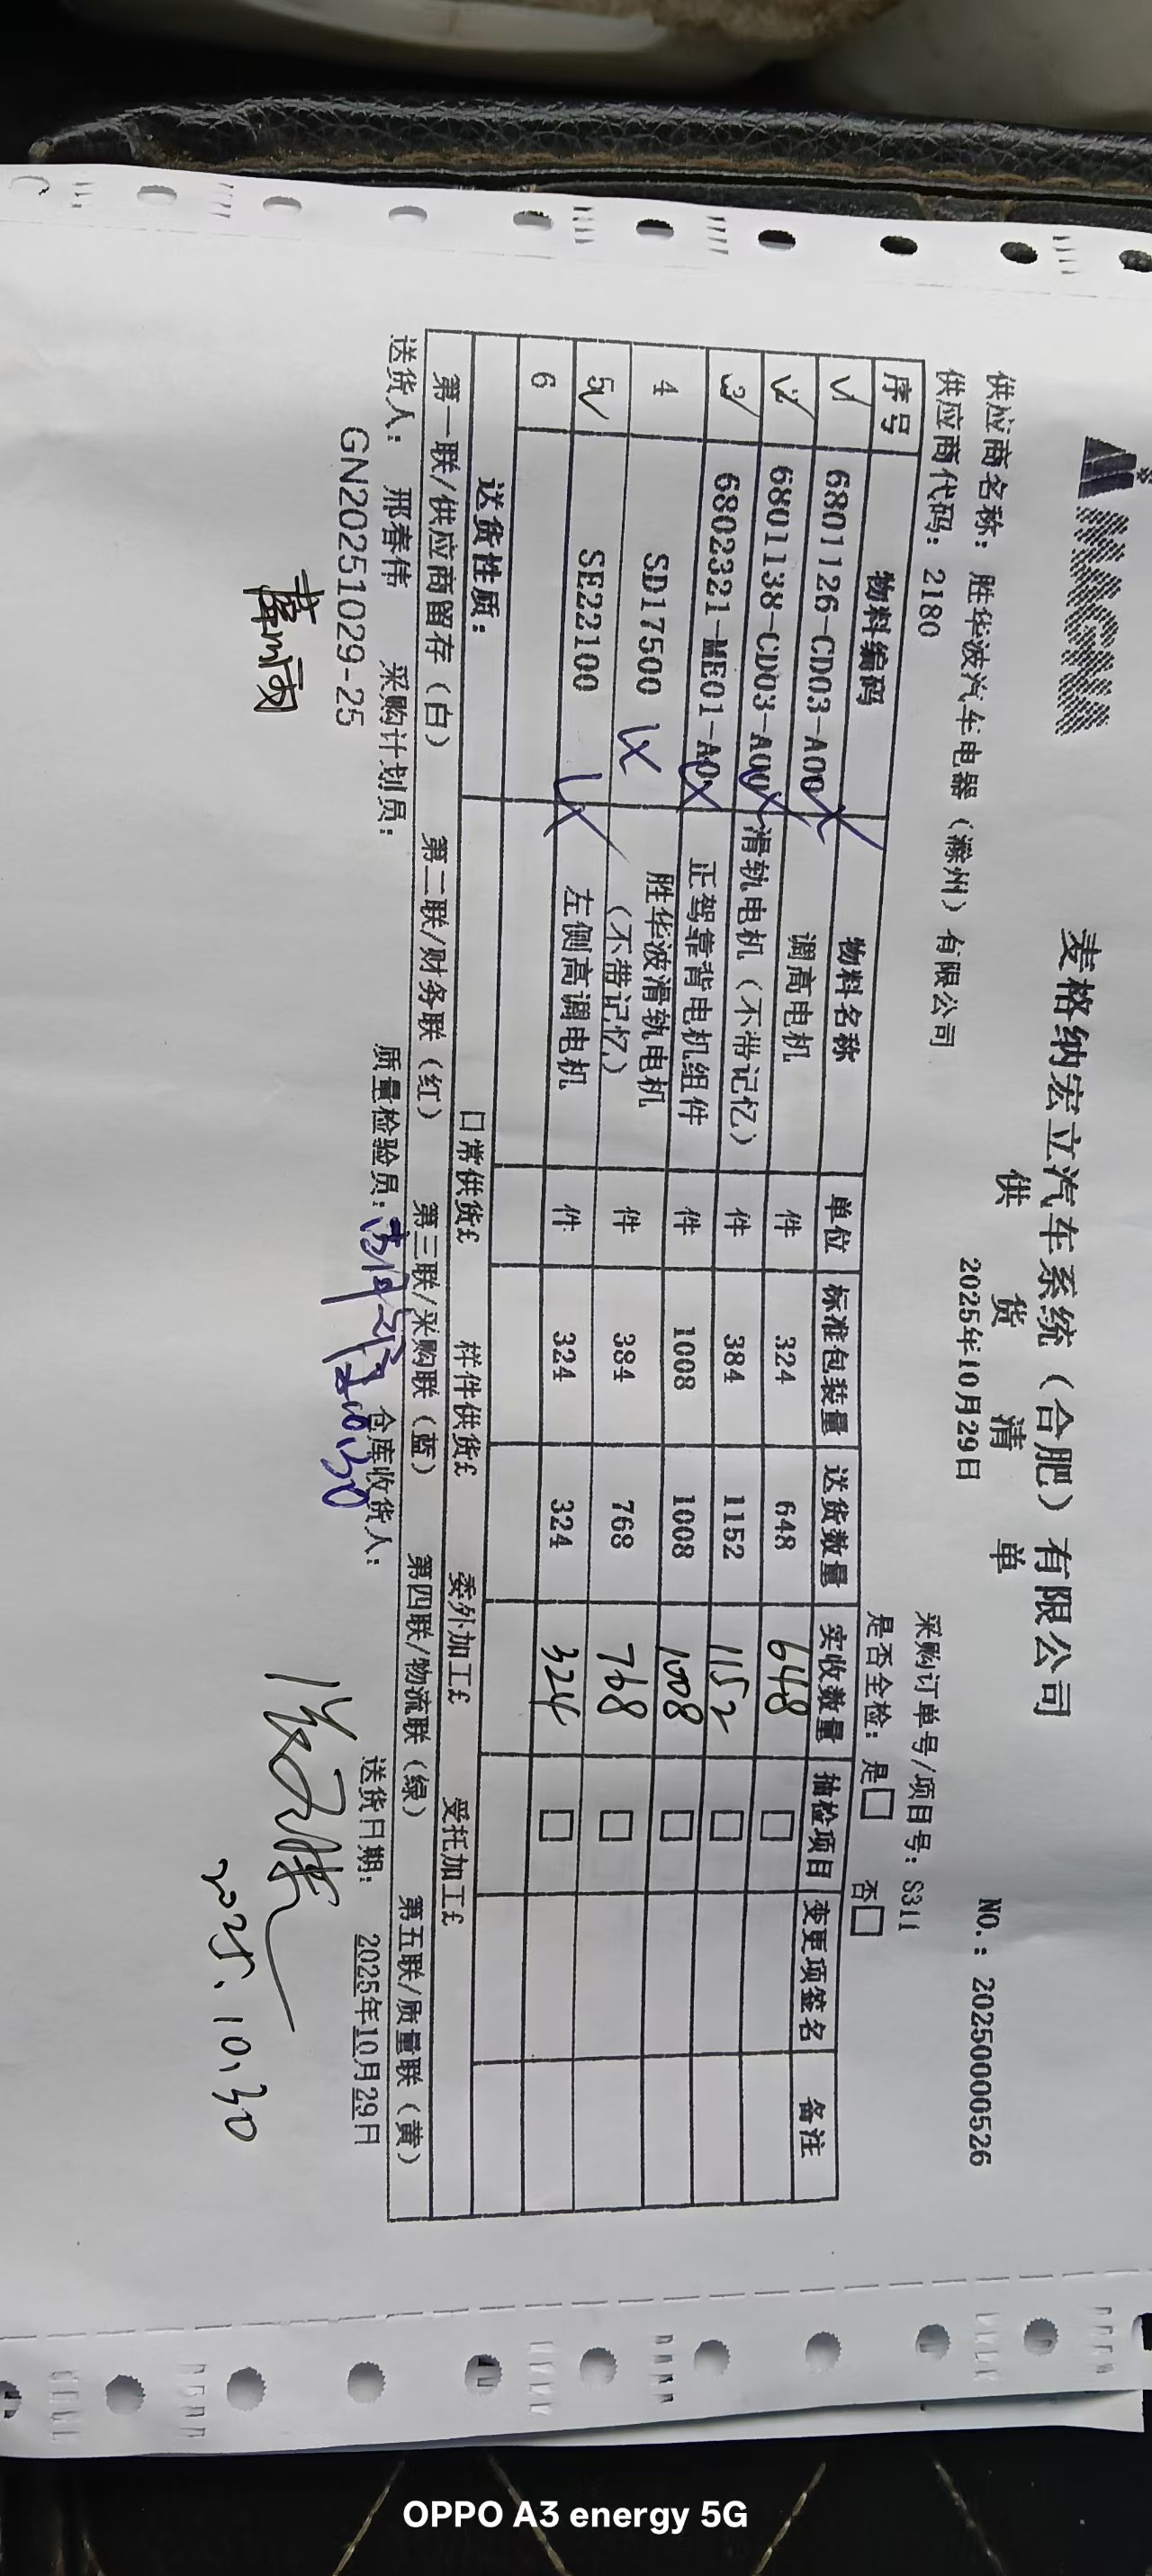 MAGNA
麦格纳宏立汽车系统（合肥）有限公司
供 货 清 单
NO.: 20250000526
供应商名称: 胜华波汽车电器（滁州）有限公司
2025年10月29日
采购订单号/项目号: S311
供应商代码: 2180
是否全检: 是□ 否□
序号 物料编码 物料名称 单位 标准包装量 送货数量 实收数量 抽检项目 变更项签名 备注
1 6801126-CD03-A00 调高电机 件 324 648 648 □
2 6801138-CD03-A00 滑轨电机（不带记忆） 件 384 1152 1152 □
3 6802321-ME01-A0 正驾靠背电机组件 件 1008 1008 1008 □
4 SD17500 胜华波滑轨电机（不带记忆） 件 384 768 768 □
5 SE22100 左侧高调电机 件 324 324 324 □
6
送货性质: 日常供货£ 样件供货£ 委外加工£ 受托加工£
第一联/供应商留存（白） 第二联/财务联（红） 第三联/采购联（蓝） 第四联/物流联（绿） 第五联/质量联（黄）
送货人: 邢春伟 采购计划员: 质量检验员: 仓库收货人: 送货日期: 2025年10月29日
GN20251029-25
2025.10.30
OPPO A3 energy 5G